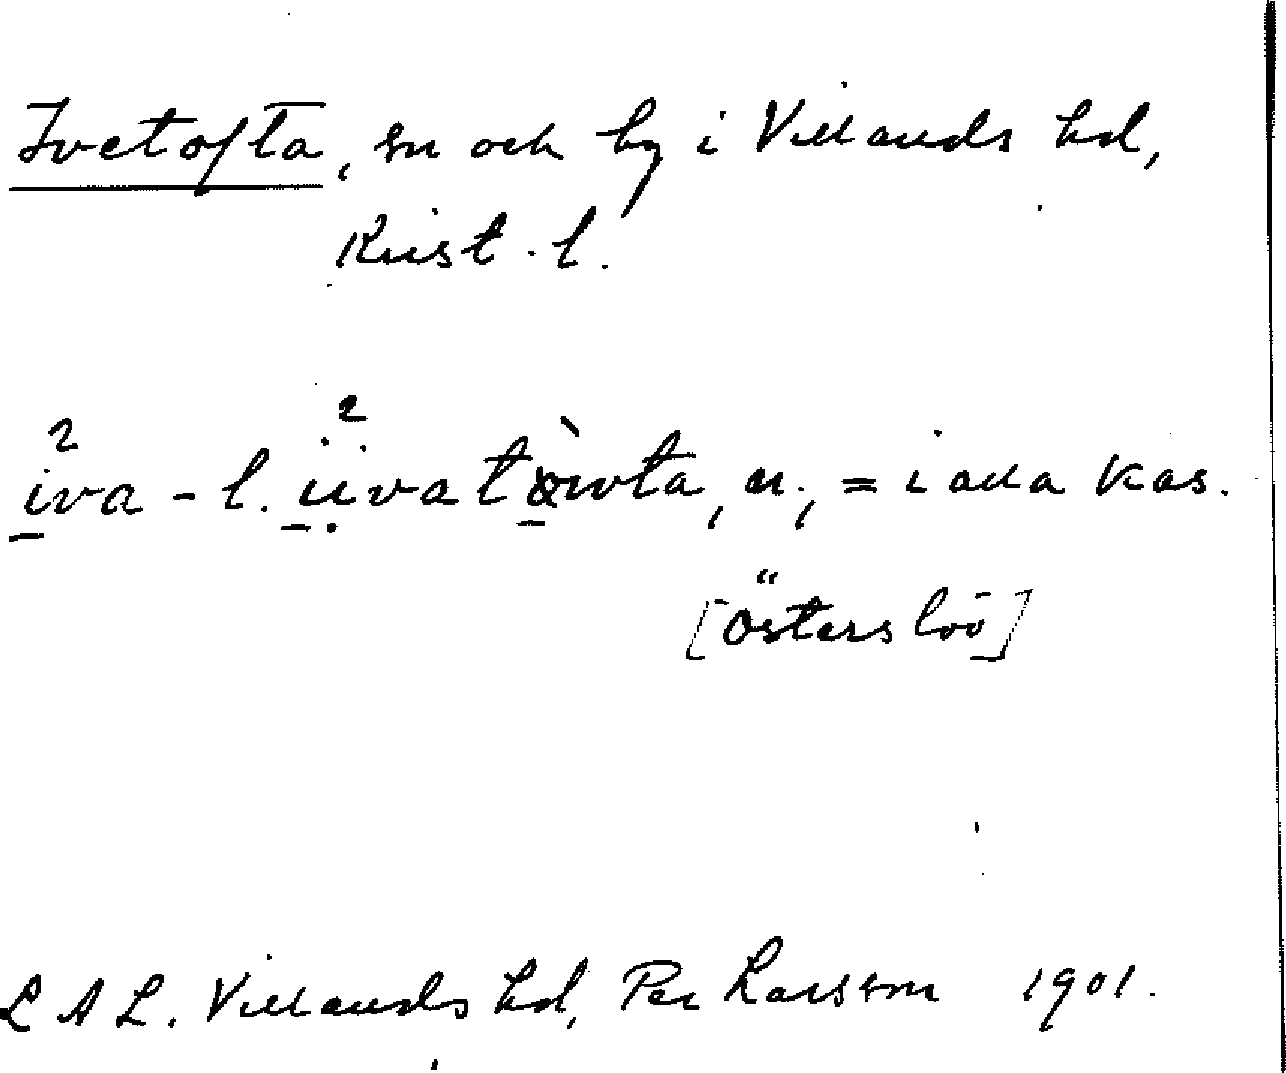 Ivetofta, sn och by i Villands hd,
Krist. l.
iva- l. üvatòwta, n., = i alla kas.
[Österslöv]
L A L. Villands hd, Per Larsson 1901.